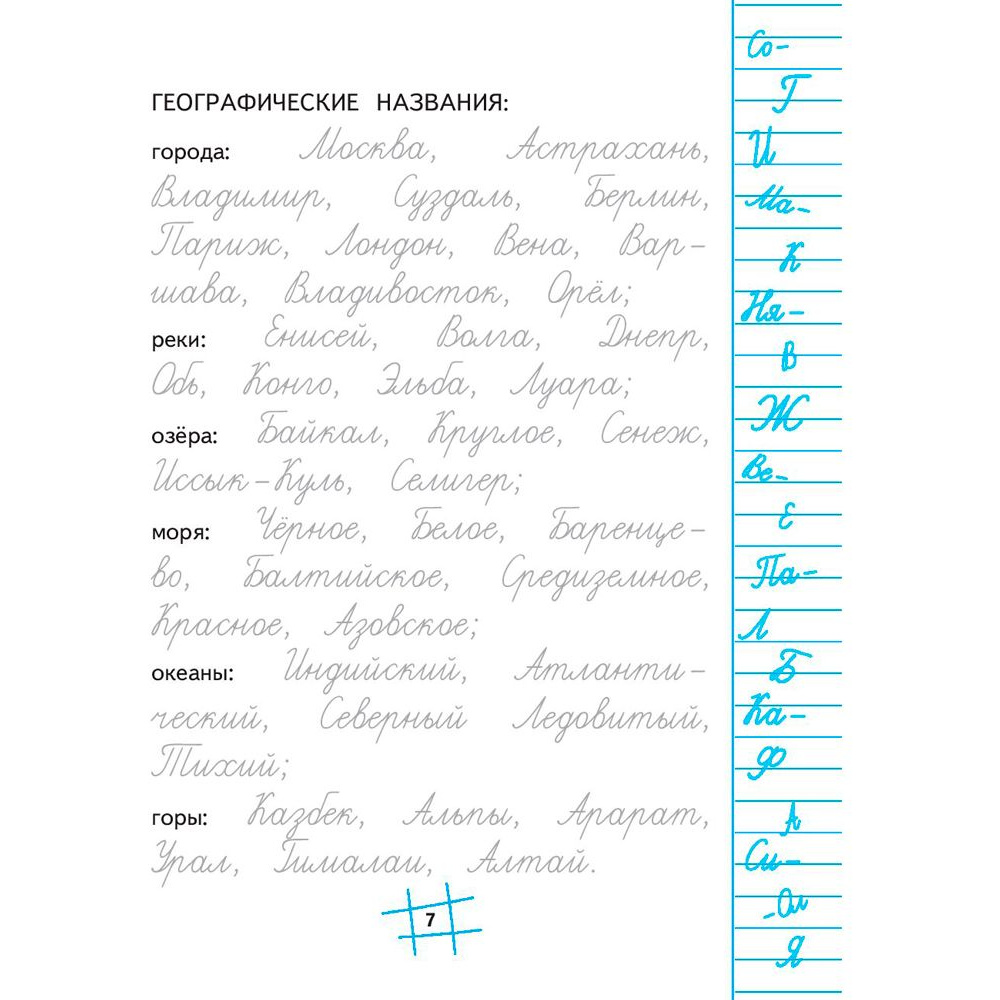 ГЕОГРАФИЧЕСКИЕ НАЗВАНИЯ:
города: Москва, Астрахань,
Владимир, Суздаль, Берлин,
Париж, Лондон, Вена, Вар-
шава, Владивосток, Орёл;
реки: Енисей, Волга, Днепр,
Обь, Конго, Эльба, Луара;
озёра: Байкал, Круглое, Сенеж,
Иссык-Куль, Селигер;
моря: Чёрное, Белое, Баренце-
во, Балтийское, Средиземное,
Красное, Азовское;
океаны: Индийский, Атланти-
ческий, Северный Ледовитый,
Тихий;
горы: Казбек, Альпы, Арарат,
Урал, Гималаи, Алтай.
7
Со-
Г
И
Ма-
К
Ня-
В
Ж
Ве-
Е
Па-
Л
Б
Ка-
Ф
А
Си-
-Ол
Я